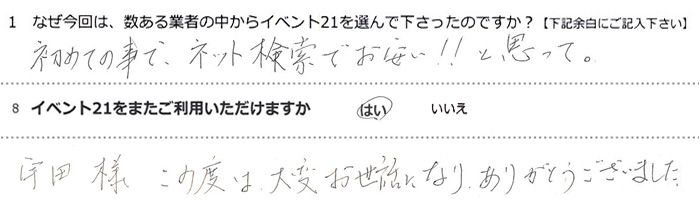 1 なぜ今回は、数ある業者の中からイベント21を選んで下さったのですか？【下記余白にご記入下さい】
初めての事で、ネット検索でお安い!!と思って。
8 イベント21をまたご利用いただけますか はい いいえ
宇田様 この度は、大変お世話になり、ありがとうございました